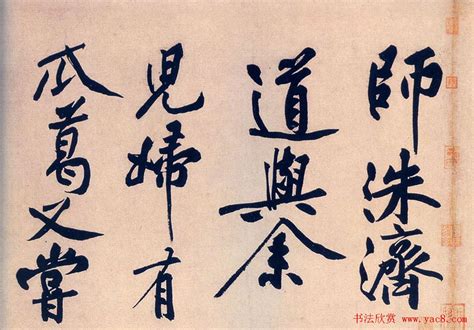 師洙濟
道與余
兒婦有
瓜葛又嘗
书法欣赏 www.yac8.com